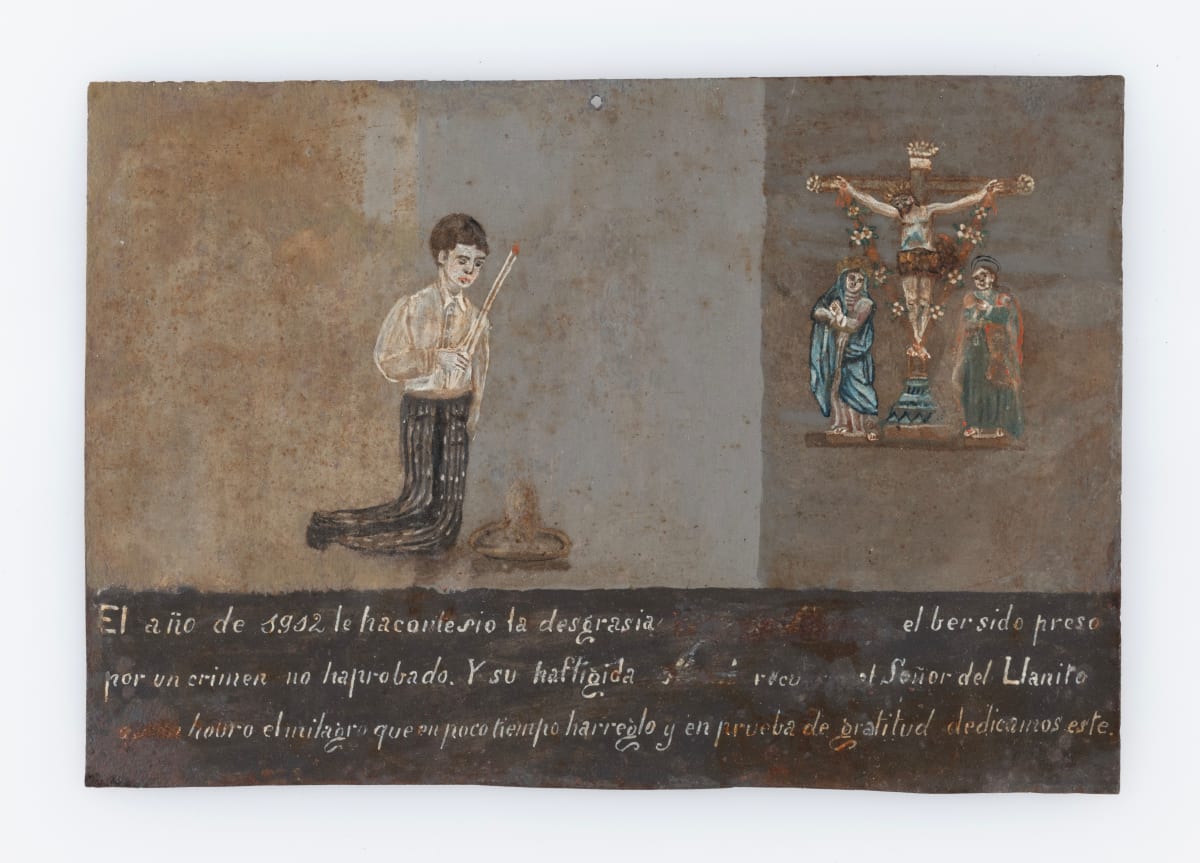 El año de 1912 le hacontesio la desgrasia el ber sido preso
por un crimen no haprobado. Y su hafligida el Señor del Llanito
hobro el milagro que en poco tiempo harreglo y en prueba de gratitud dedicamos este.